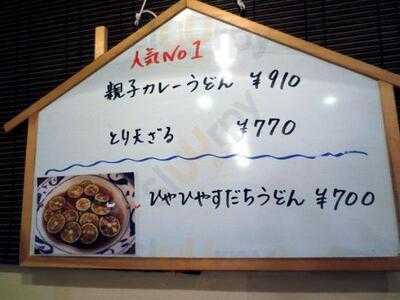 人気No1
親子カレーうどん ¥910
とり天ざる ¥770
ひやひやすだちうどん ¥700